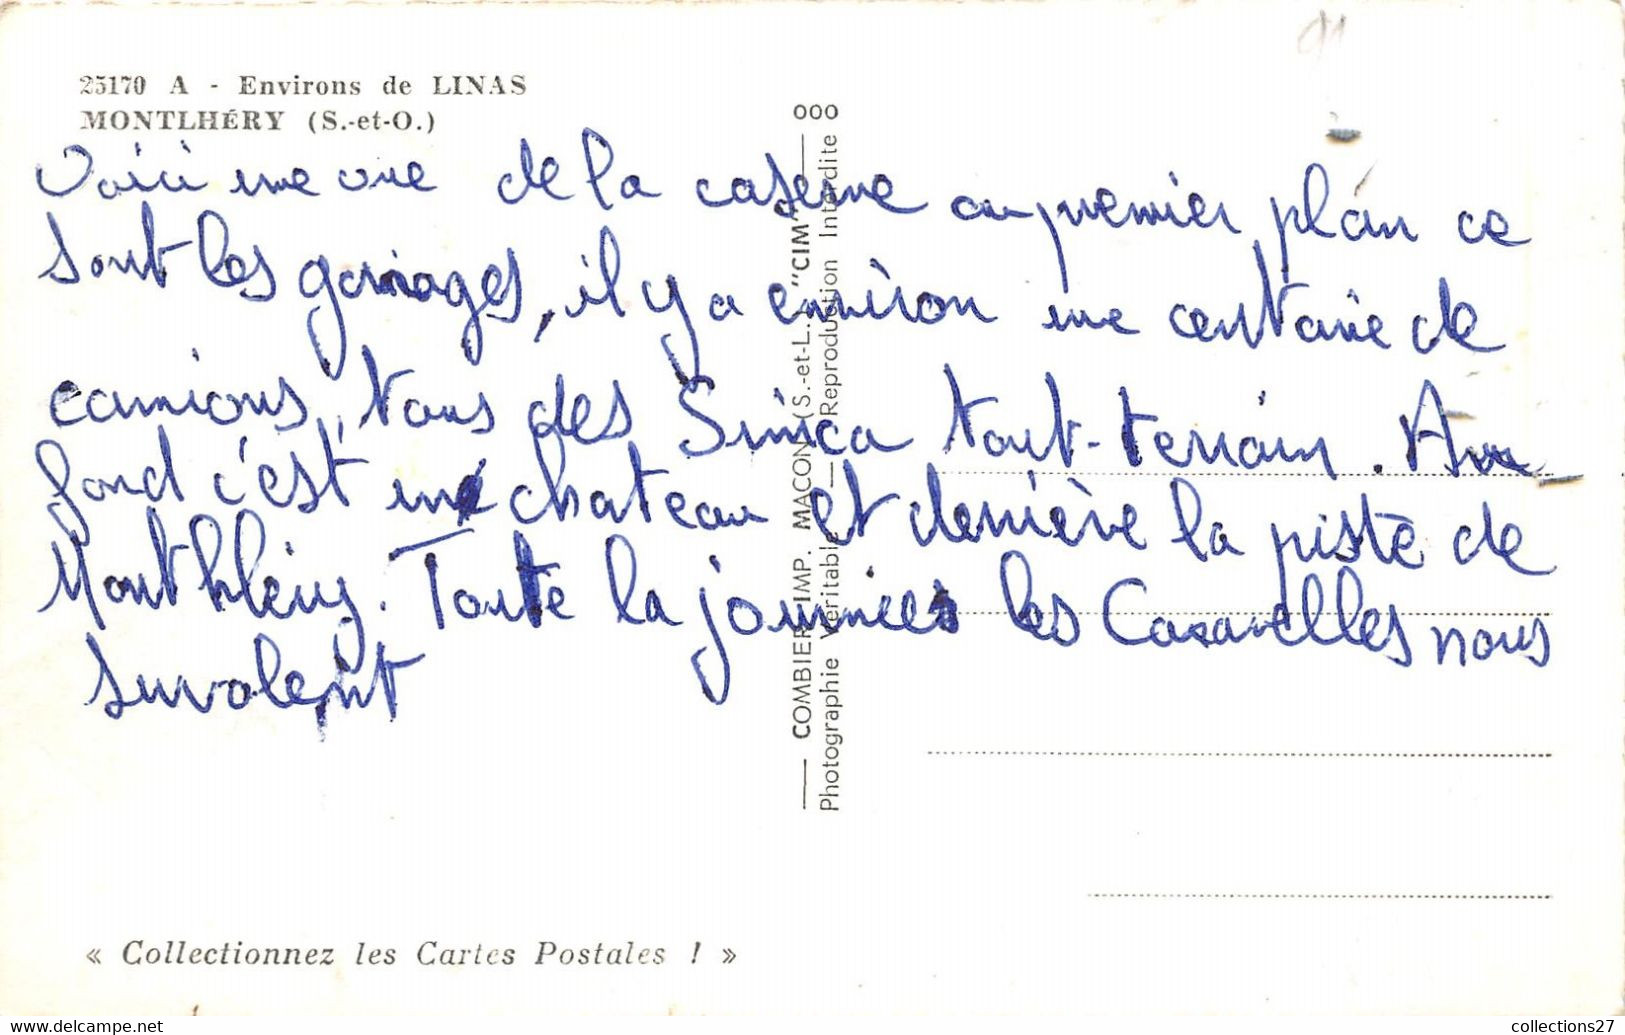 25170 A - Environs de LINAS
MONTLHÉRY (S.-et-O.)
91
Voici une vue de la caserne au premier plan ce
sont les garages, il y a environ une centaine de
camions, tous des Simca tout-terrain. Au
fond c'est un chateau et derrière la piste de
Montlhéry. Toute la journée les Caravelles nous
survolent
COMBIER IMP. MACON (S.-et-L.) "CIM" 000
Photographie Véritable — Reproduction Interdite
« Collectionnez les Cartes Postales ! »
collections27